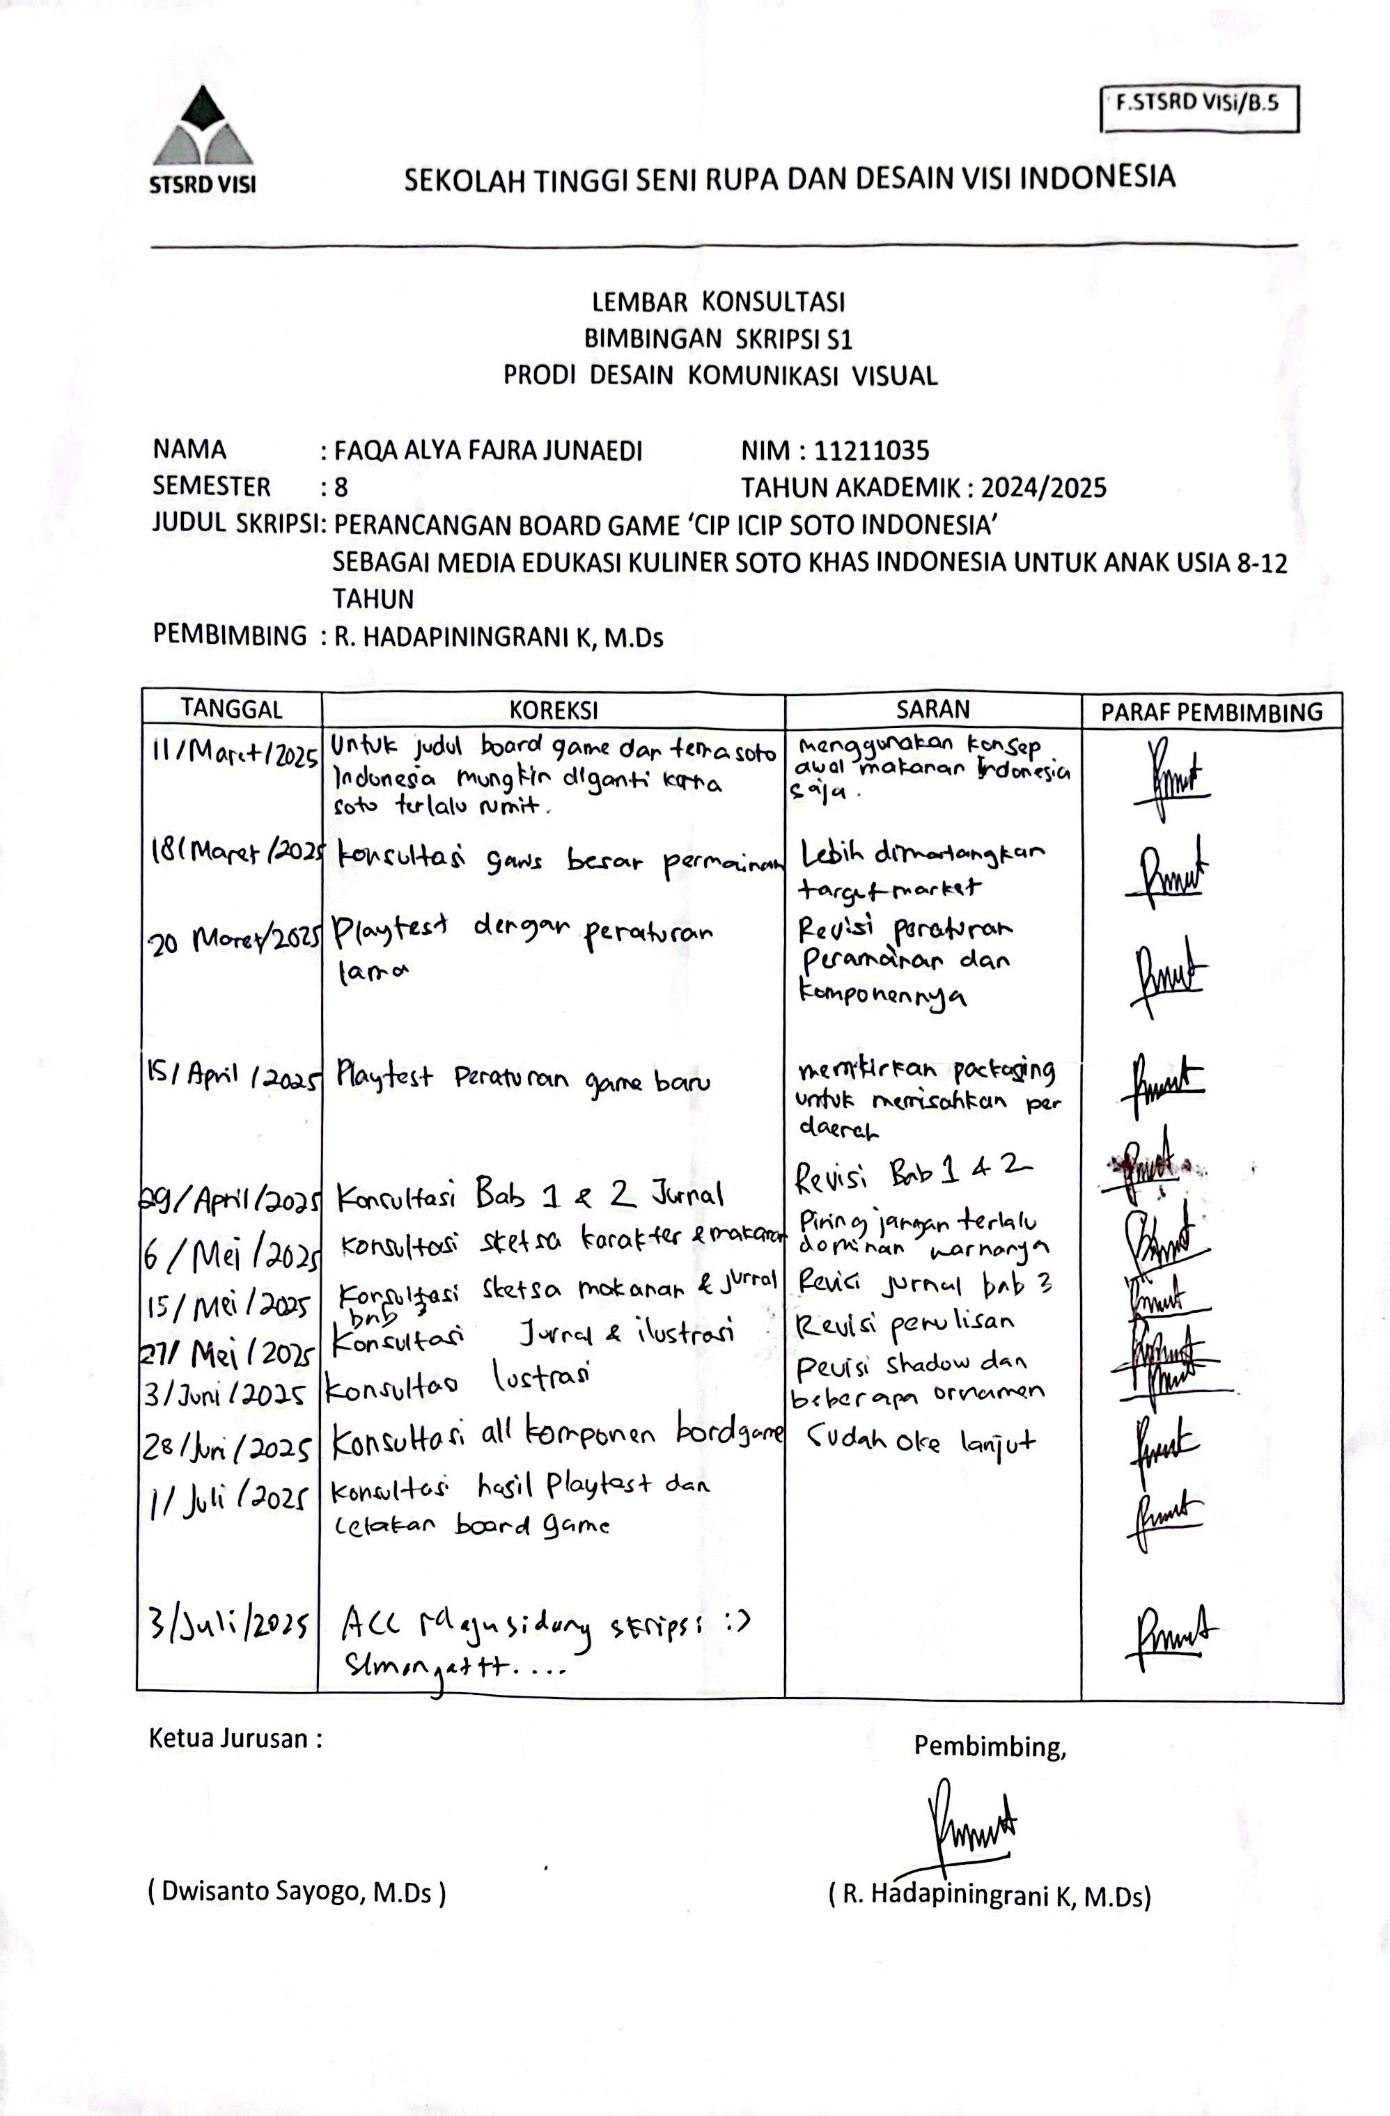 F.STSRD VISi/B.5
STSRD VISI
SEKOLAH TINGGI SENI RUPA DAN DESAIN VISI INDONESIA
LEMBAR KONSULTASI
BIMBINGAN SKRIPSI S1
PRODI DESAIN KOMUNIKASI VISUAL
NAMA : FAQA ALYA FAJRA JUNAEDI NIM : 11211035
SEMESTER : 8 TAHUN AKADEMIK : 2024/2025
JUDUL SKRIPSI: PERANCANGAN BOARD GAME ‘CIP ICIP SOTO INDONESIA’
SEBAGAI MEDIA EDUKASI KULINER SOTO KHAS INDONESIA UNTUK ANAK USIA 8-12
TAHUN
PEMBIMBING : R. HADAPININGRANI K, M.Ds
TANGGAL KOREKSI SARAN PARAF PEMBIMBING
11/Maret/2025 Untuk judul board game dan tema soto
Indonesia mungkin diganti karna
soto terlalu rumit.
menggunakan konsep
awal makanan Indonesia
saja.
18/Maret/2025 Konsultasi garis besar permainan
Lebih dimatangkan
target market
20 Maret/2025 Playtest dengan peraturan
lama
Revisi peraturan
Peramainan dan
komponennya
15/April/2025 Playtest Peraturan game baru
memikirkan packaging
untuk memisahkan per
daerah
29/April/2025 Konsultasi Bab 1 & 2 Jurnal
Revisi Bab 1 & 2
6/Mei/2025 Konsultasi sketsa karakter & makanan
Piring jangan terlalu
dominan warnanya
15/Mei/2025 Konsultasi sketsa makanan & jurnal
bab 3
Revisi jurnal bab 3
27/Mei/2025 Konsultasi Jurnal & ilustrasi
Revisi penulisan
3/Juni/2025 Konsultasi lustrasi
Revisi shadow dan
beberapa ornamen
28/Juni/2025 Konsultasi all komponen bordgame
Sudah oke lanjut
1/Juli/2025 Konsultasi hasil Playtest dan
Cetakan board game
3/Juli/2025 ACC sidang skripsi :)
Semangattt....
Ketua Jurusan :
Pembimbing,
( Dwisanto Sayogo, M.Ds )
( R. Hadapiningrani K, M.Ds)